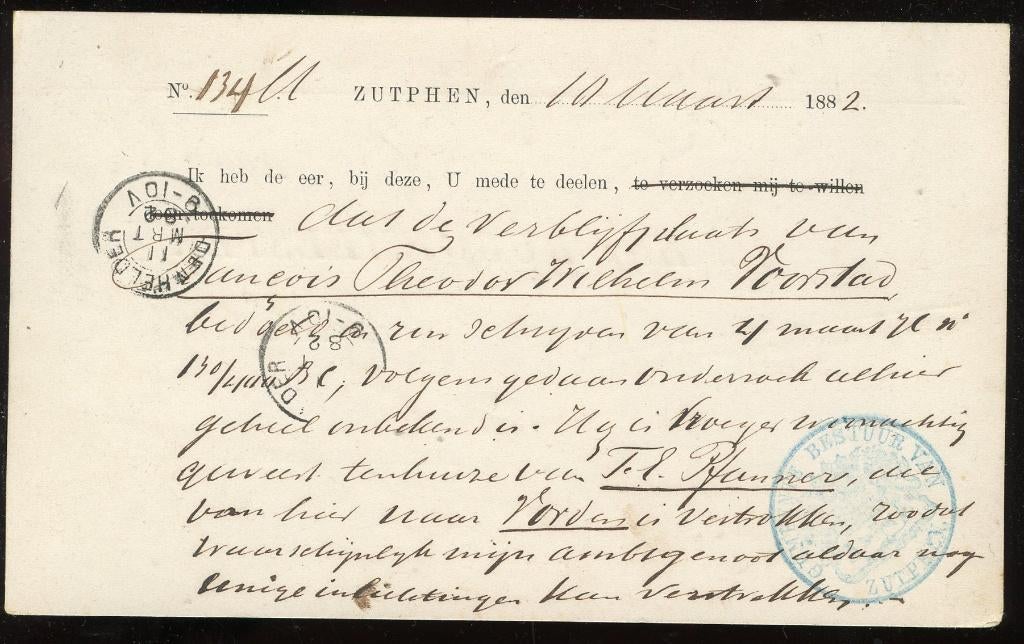 No. 134 ZUTPHEN, den 10 Maart 1882.
Ik heb de eer, bij deze, U mede te deelen, te verzoeken mij te willen
doen toekomen dat de verblijfplaats van
François Theodor Wilhelm Voorstad,
bedoeld in schrijven van 4 maart
volgens gedaan onderzoek alhier
geheel onbekend is. Hij is vroeger woonachtig
geweest tenhuize van T. E. Pfanner, die
van hier naar Vorden is vertrokken, zoodat
waarschijnlijk mijn ambtgenoot aldaar nog
eenige inlichtingen kan verstrekken.
DEN HELDER
11
MRT
82
9-10V
DER
82
9-10V
GEMEENTE BESTUUR VAN ZUTPHEN